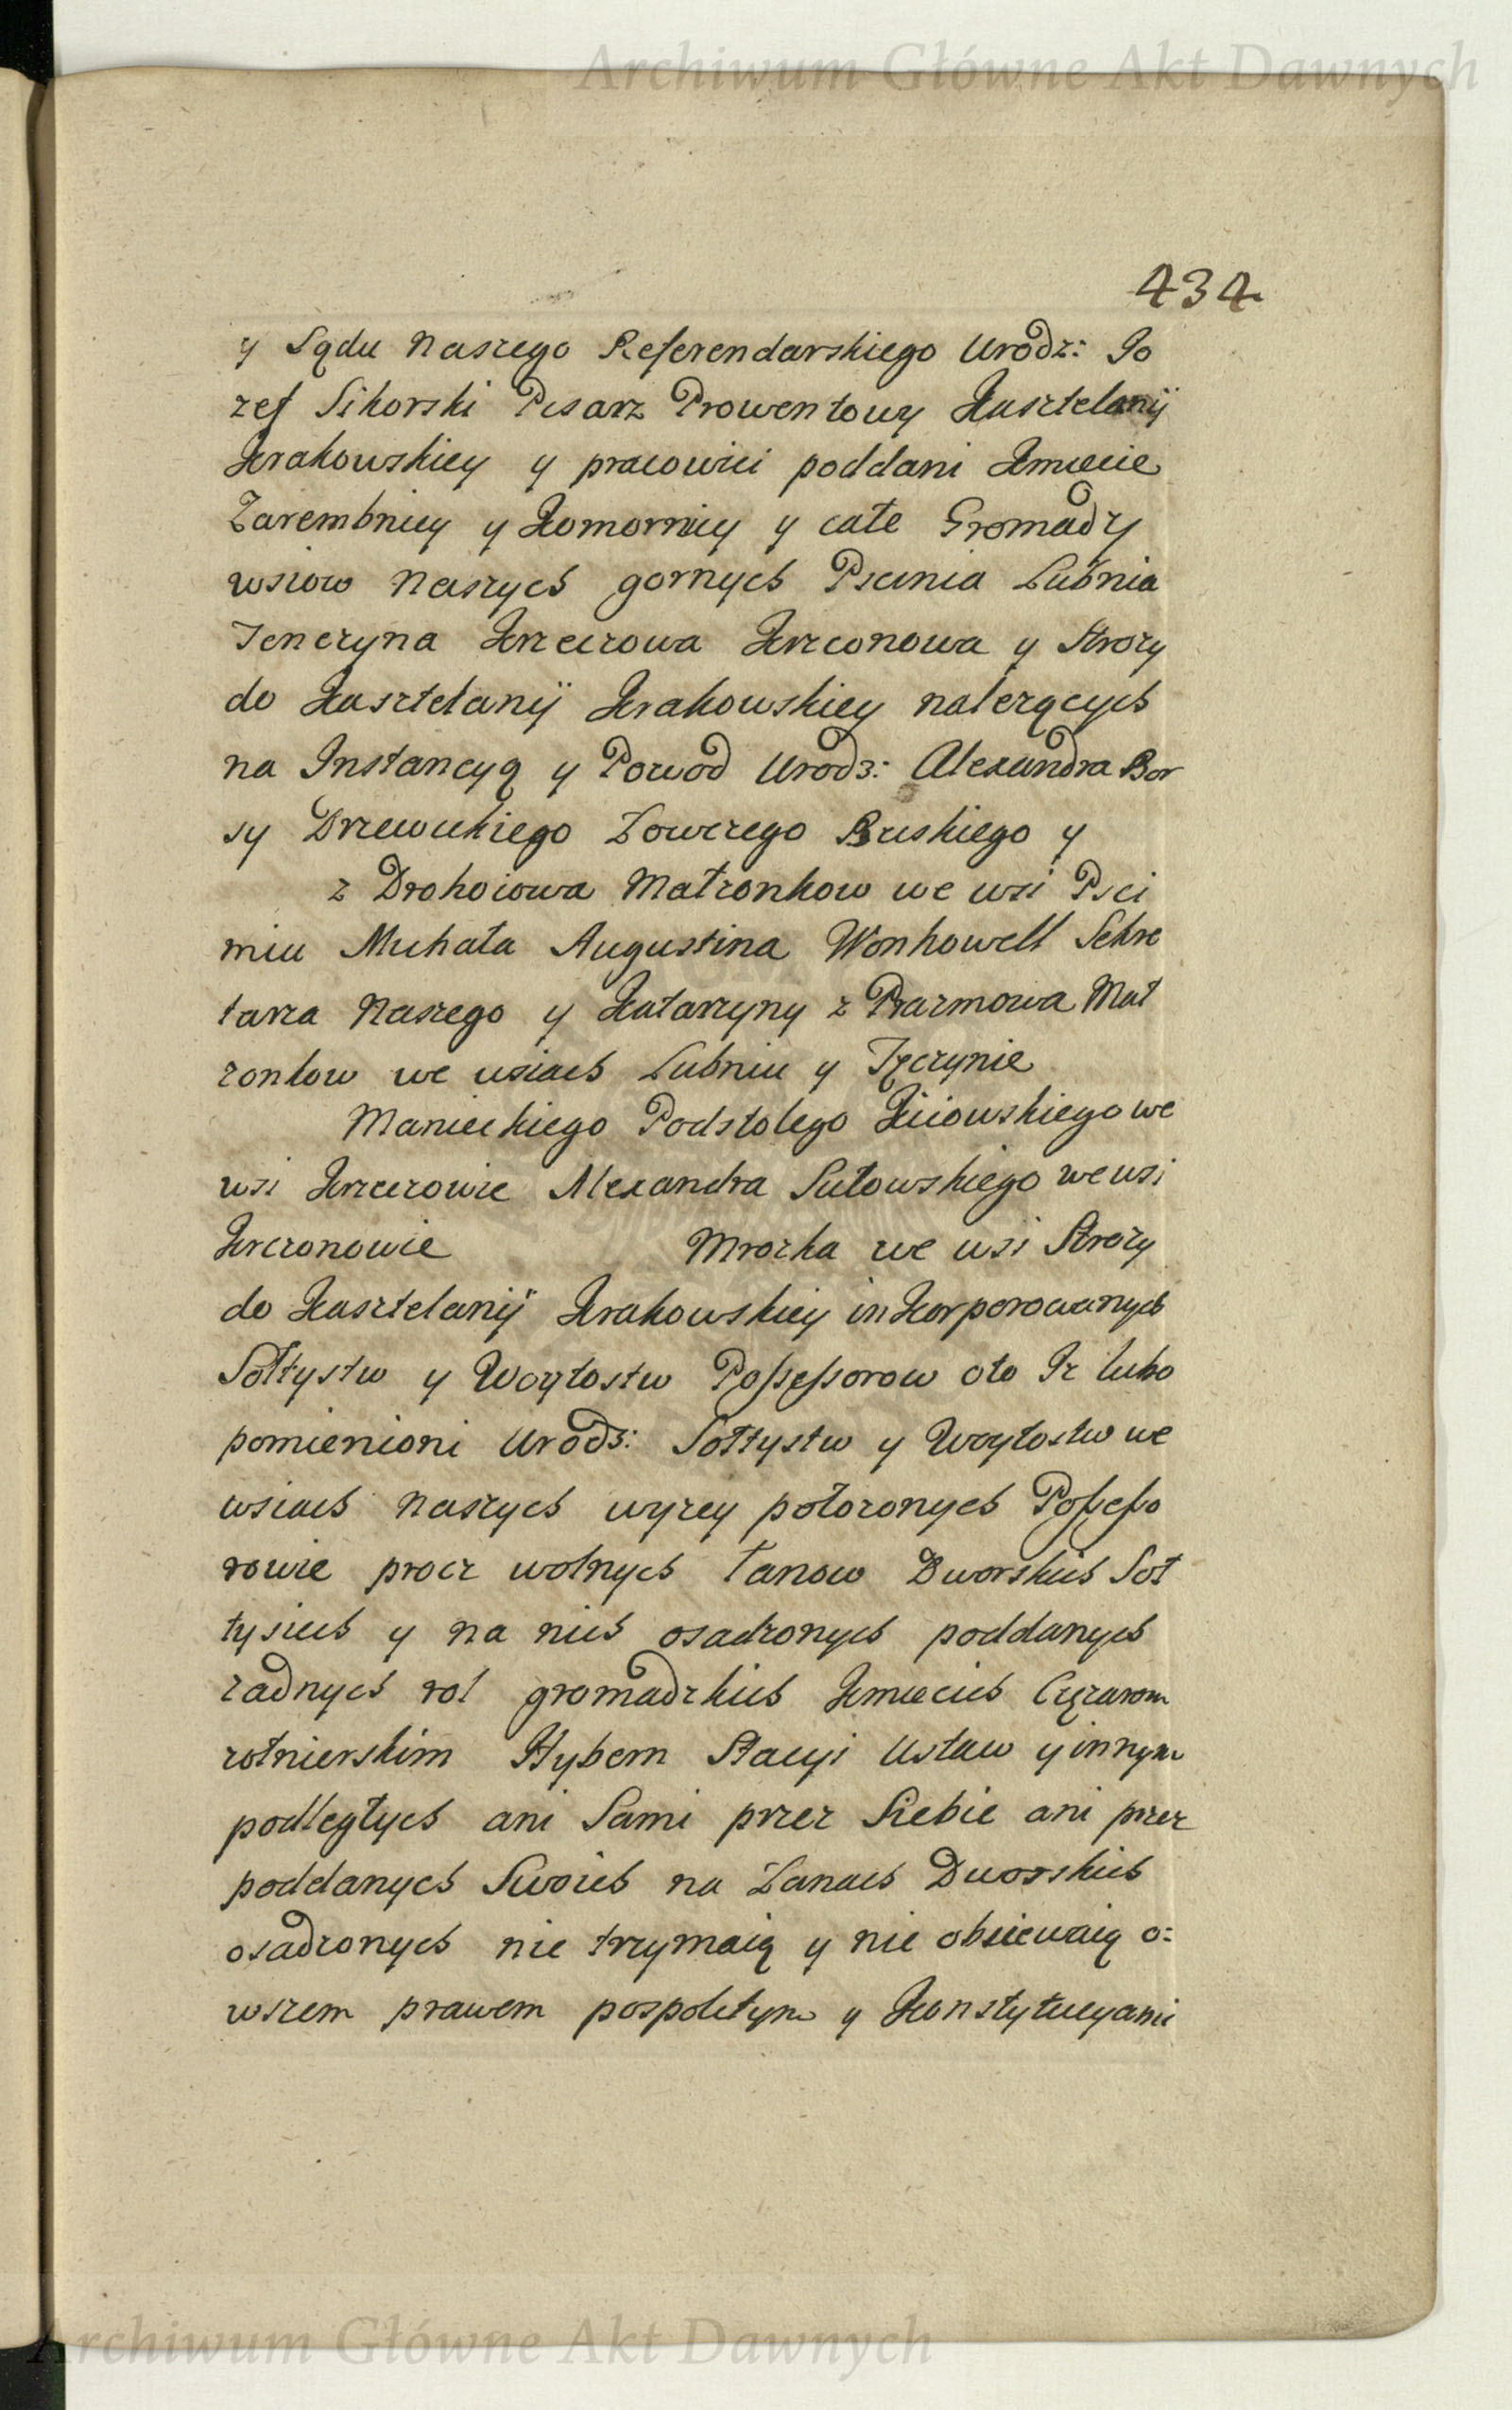 Archiwum Główne Akt Dawnych
434
y Sądu Naszego Referendarskiego Urodz: Jo
zef Sikorski Pisarz Prowentowy Kasztelanij
Krakowskiey y pracowici poddani Kmiecie
Zarembnicy y Komornicy y całe Gromady
wsiow Naszych gornych Pscimia Lubnia
Tenczyna Krzeczowa Krzczonowa y Strozy
do Kasztelanij Krakowskiey nalezących
na Instancyą y Powod Urodz: Alexandra Bor
sy Drzewickiego Łowczego Buskiego y
z Drohoiowa Małzonkow we wsi Psci
miu Michała Augustina Wonhowell Sekre
tarza Naszego y Katarzyny z Prazmowa Mał
zonkow we wsiach Lubniu y Tęczynie
Manieckiego Podstolego Kiiowskiego we
wsi Krzeczowie Alexandra Sułowskiego we wsi
Krzczonowie Mrozka we wsi Strozy
do Kasztelanij Krakowskiey inkorporowanych
Sołtystw y Woytostw Possessorow oto Iz lubo
pomienioni Urodz: Sołtystw y Woytostw we
wsiach Naszych wyzey połozonych Possesso
rowie procz wolnych Łanow Dworskich Soł
tysich y na nich osadzonych poddanych
zadnych rol gromadzkich Kmiecich Cięzarom
zołnierskim Hybern Stacyi Ustaw y innym
podległych ani Sami przez Siebie ani przez
poddanych Swoich na Łanach Dworskich
osadzonych nie trzymaią y nie obsiewaią o:
wszem prawem pospolitym y Konstytucyami
Archiwum Główne Akt Dawnych